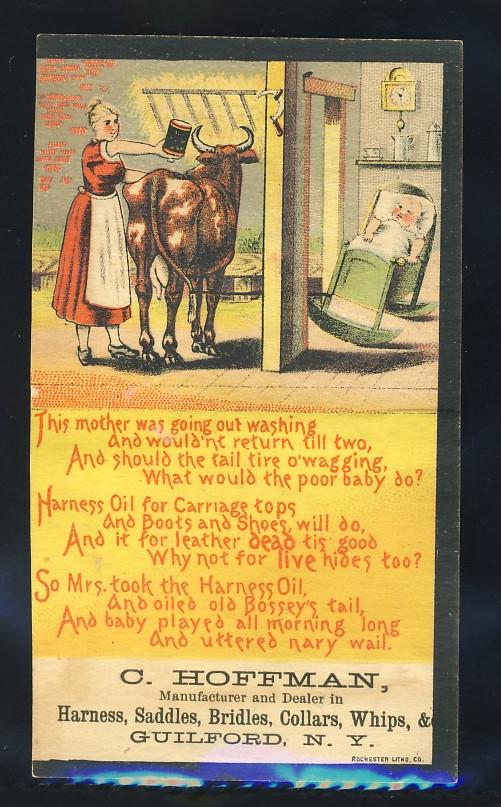 This mother was going out washing
And would'nt return till two,
And should the tail tire o'wagging,
What would the poor baby do?
Harness Oil for Carriage tops
And Boots and Shoes, will do,
And if for leather dead tis good
Why not for live hides too?
So Mrs. took the Harness Oil,
And oiled old Bossey's tail,
And baby played all morning long
And uttered nary wail.
C. HOFFMAN,
Manufacturer and Dealer in
Harness, Saddles, Bridles, Collars, Whips, &c
GUILFORD, N. Y.
ROCHESTER LITHO. CO.